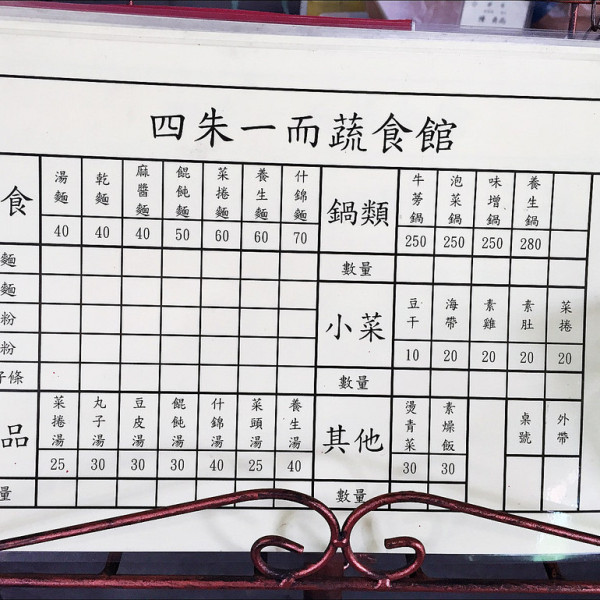 四朱一而蔬食館
食 湯麵 乾麵 麻醬麵 餛飩麵 菜捲麵 養生麵 什錦麵 鍋類 牛蒡鍋 泡菜鍋 味增鍋 養生鍋
40 40 40 50 60 60 70 250 250 250 280
麵 數量
麵 小菜 豆干 海帶 素雞 素肚 菜捲
粉
粉 10 20 20 20 20
子條 數量
品 菜捲湯 丸子湯 豆皮湯 餛飩湯 什錦湯 菜頭湯 養生湯 其他 燙青菜 素燥飯 桌號 外帶
25. 30 30 30 40 25 40 30 30
量 數量